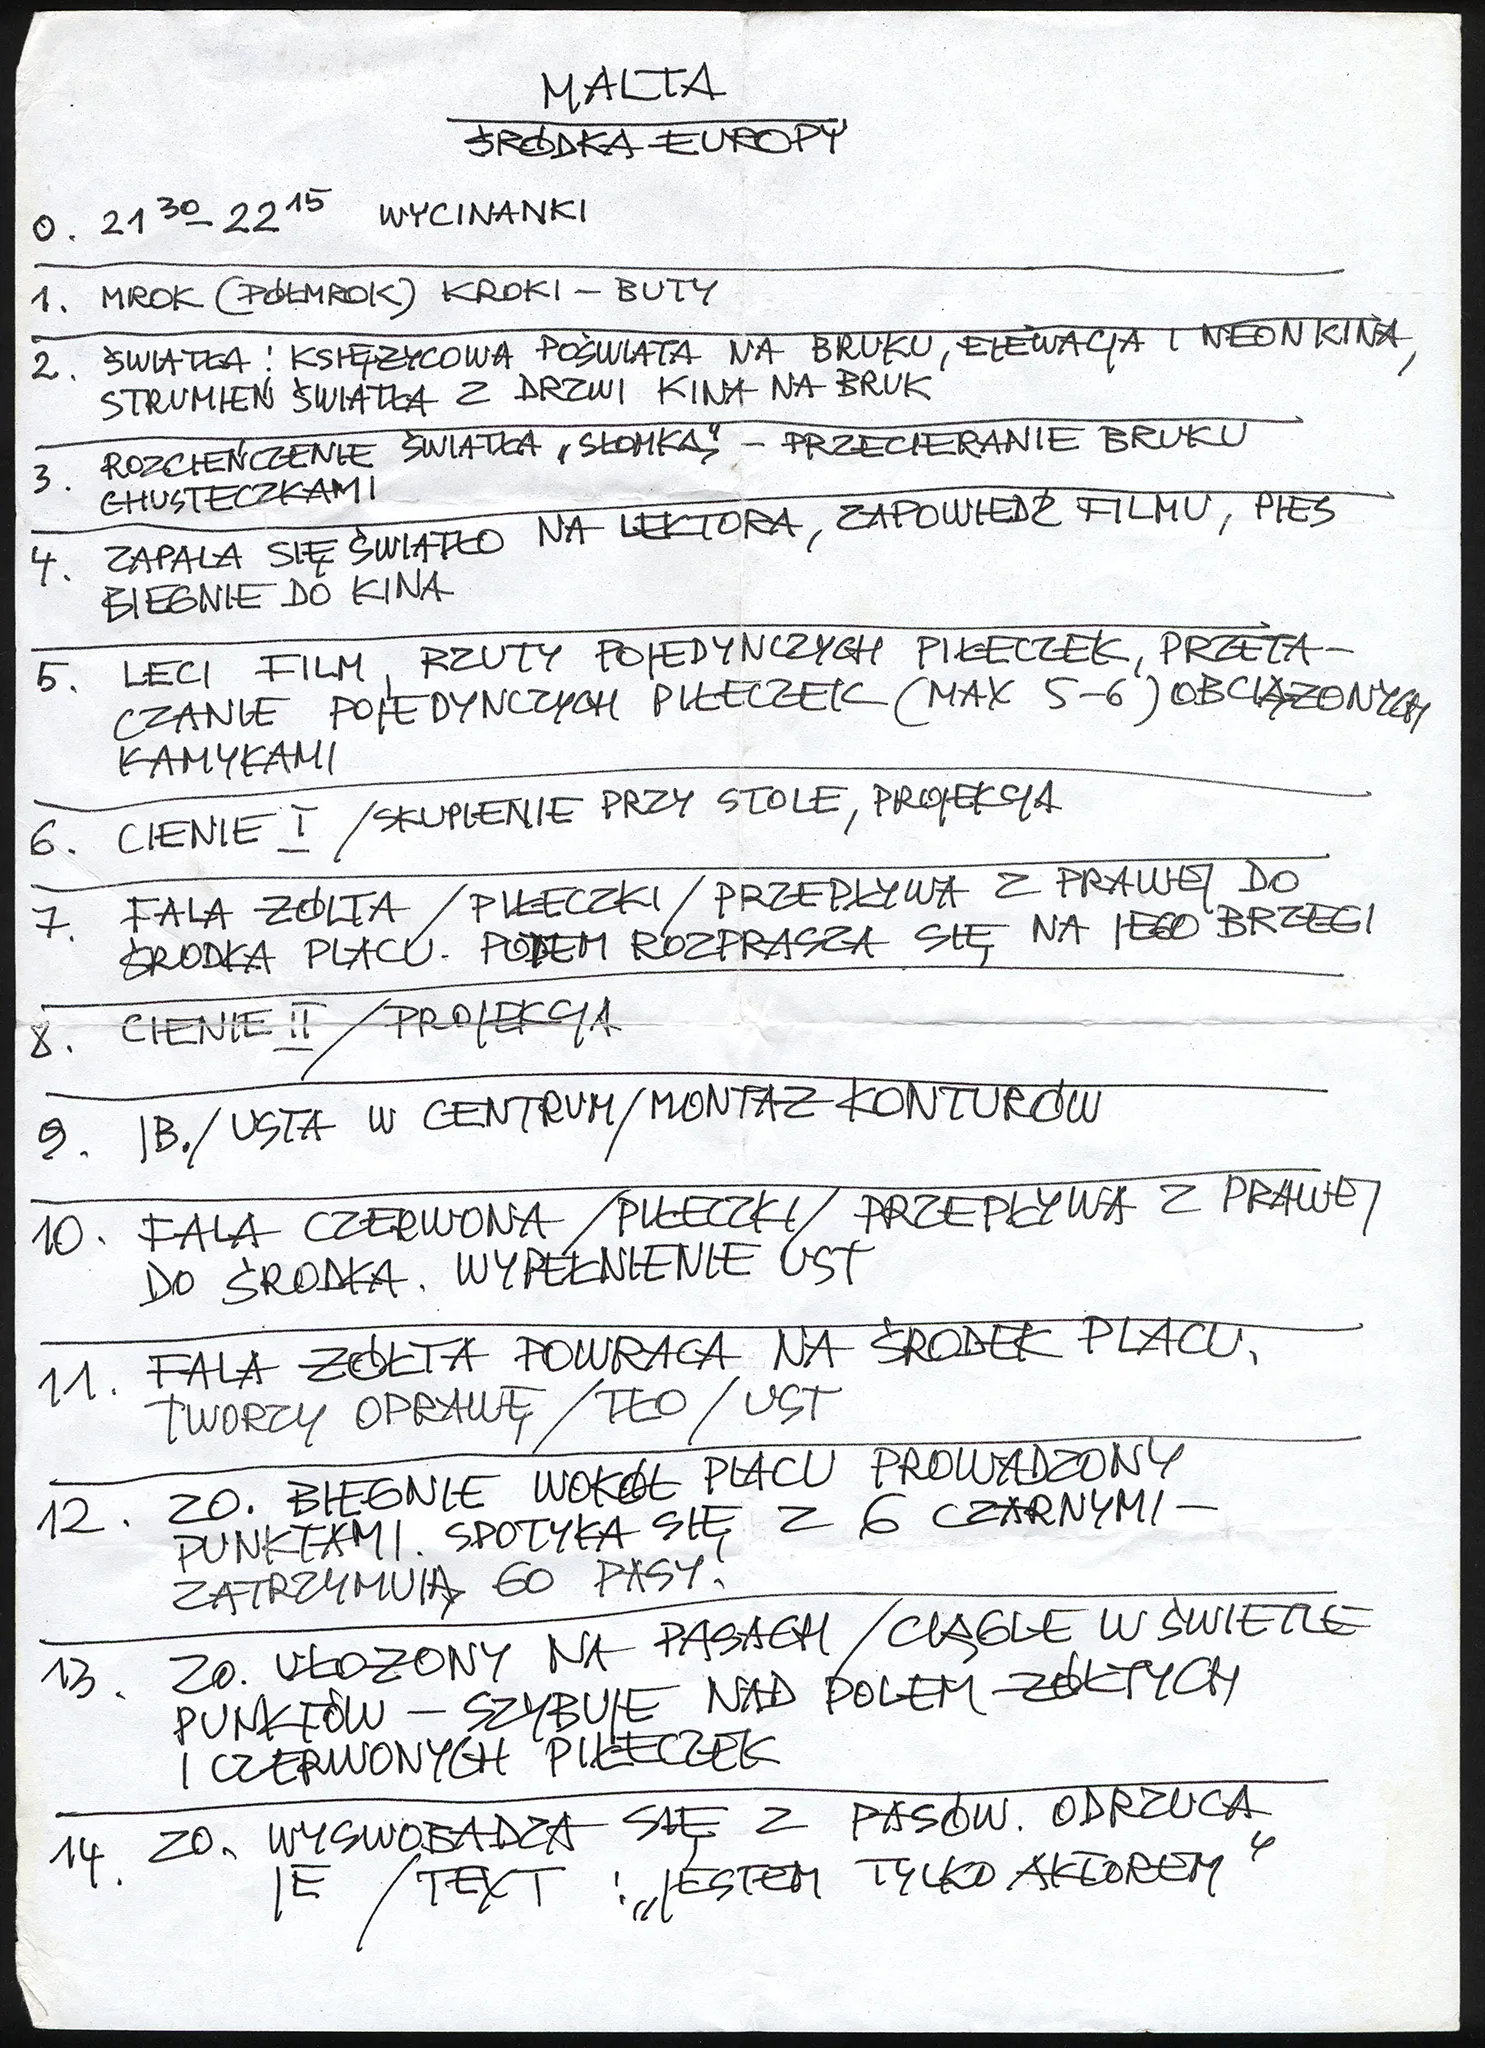 MALTA
ŚRÓDKA EUROPY
0. 21 30 – 22 15 WYCINANKI
1. MROK (PÓŁMROK) KROKI – BUTY
2. ŚWIATŁA: KSIĘŻYCOWA POŚWIATA NA BRUKU, ELEWACJA I NEON KINA,
STRUMIEŃ ŚWIATŁA Z DRZWI KINA NA BRUK
3. ROZCIEŃCZENIE ŚWIATŁA „SŁOMKĄ" – PRZECIERANIE BRUKU
CHUSTECZKAMI
4. ZAPALA SIĘ ŚWIATŁO NA LEKTORA, ZAPOWIEDŹ FILMU, PIES
BIEGNIE DO KINA
5. LECI FILM, RZUTY POJEDYNCZYCH PIŁECZEK, PRZETA-
CZANIE POJEDYNCZYCH PIŁECZEK (MAX 5-6) OBCIĄŻONYCH
KAMYKAMI
6. CIENIE I /SKUPIENIE PRZY STOLE, PROJEKCJA
7. FALA ŻÓŁTA /PIŁECZKI/ PRZEPŁYWA Z PRAWEJ DO
ŚRODKA PLACU. POTEM ROZPRASZA SIĘ NA JEGO BRZEGI
8. CIENIE II / PROJEKCJA
9. JB./USTA W CENTRUM/MONTAŻ KONTURÓW
10. FALA CZERWONA /PIŁECZKI/ PRZEPŁYWA Z PRAWEJ
DO ŚRODKA. WYPEŁNIENIE UST
11. FALA ŻÓŁTA POWRACA NA ŚRODEK PLACU.
TWORZY OPRAWĘ /TŁO/ UST
12. ZO. BIEGNIE WOKÓŁ PLACU PROWADZONY
PUNKTAMI. SPOTYKA SIĘ Z 6 CZARNYMI –
ZATRZYMUJĄ GO PASY!
13. ZO. UŁOŻONY NA PASACH /CIĄGLE W ŚWIETLE
PUNKTÓW – SZYBUJE NAD POLEM ŻÓŁTYCH
I CZERWONYCH PIŁECZEK
14. ZO. WYSWOBADZA SIĘ Z PASÓW. ODRZUCA
JE /TEXT: „JESTEM TYLKO AKTOREM"